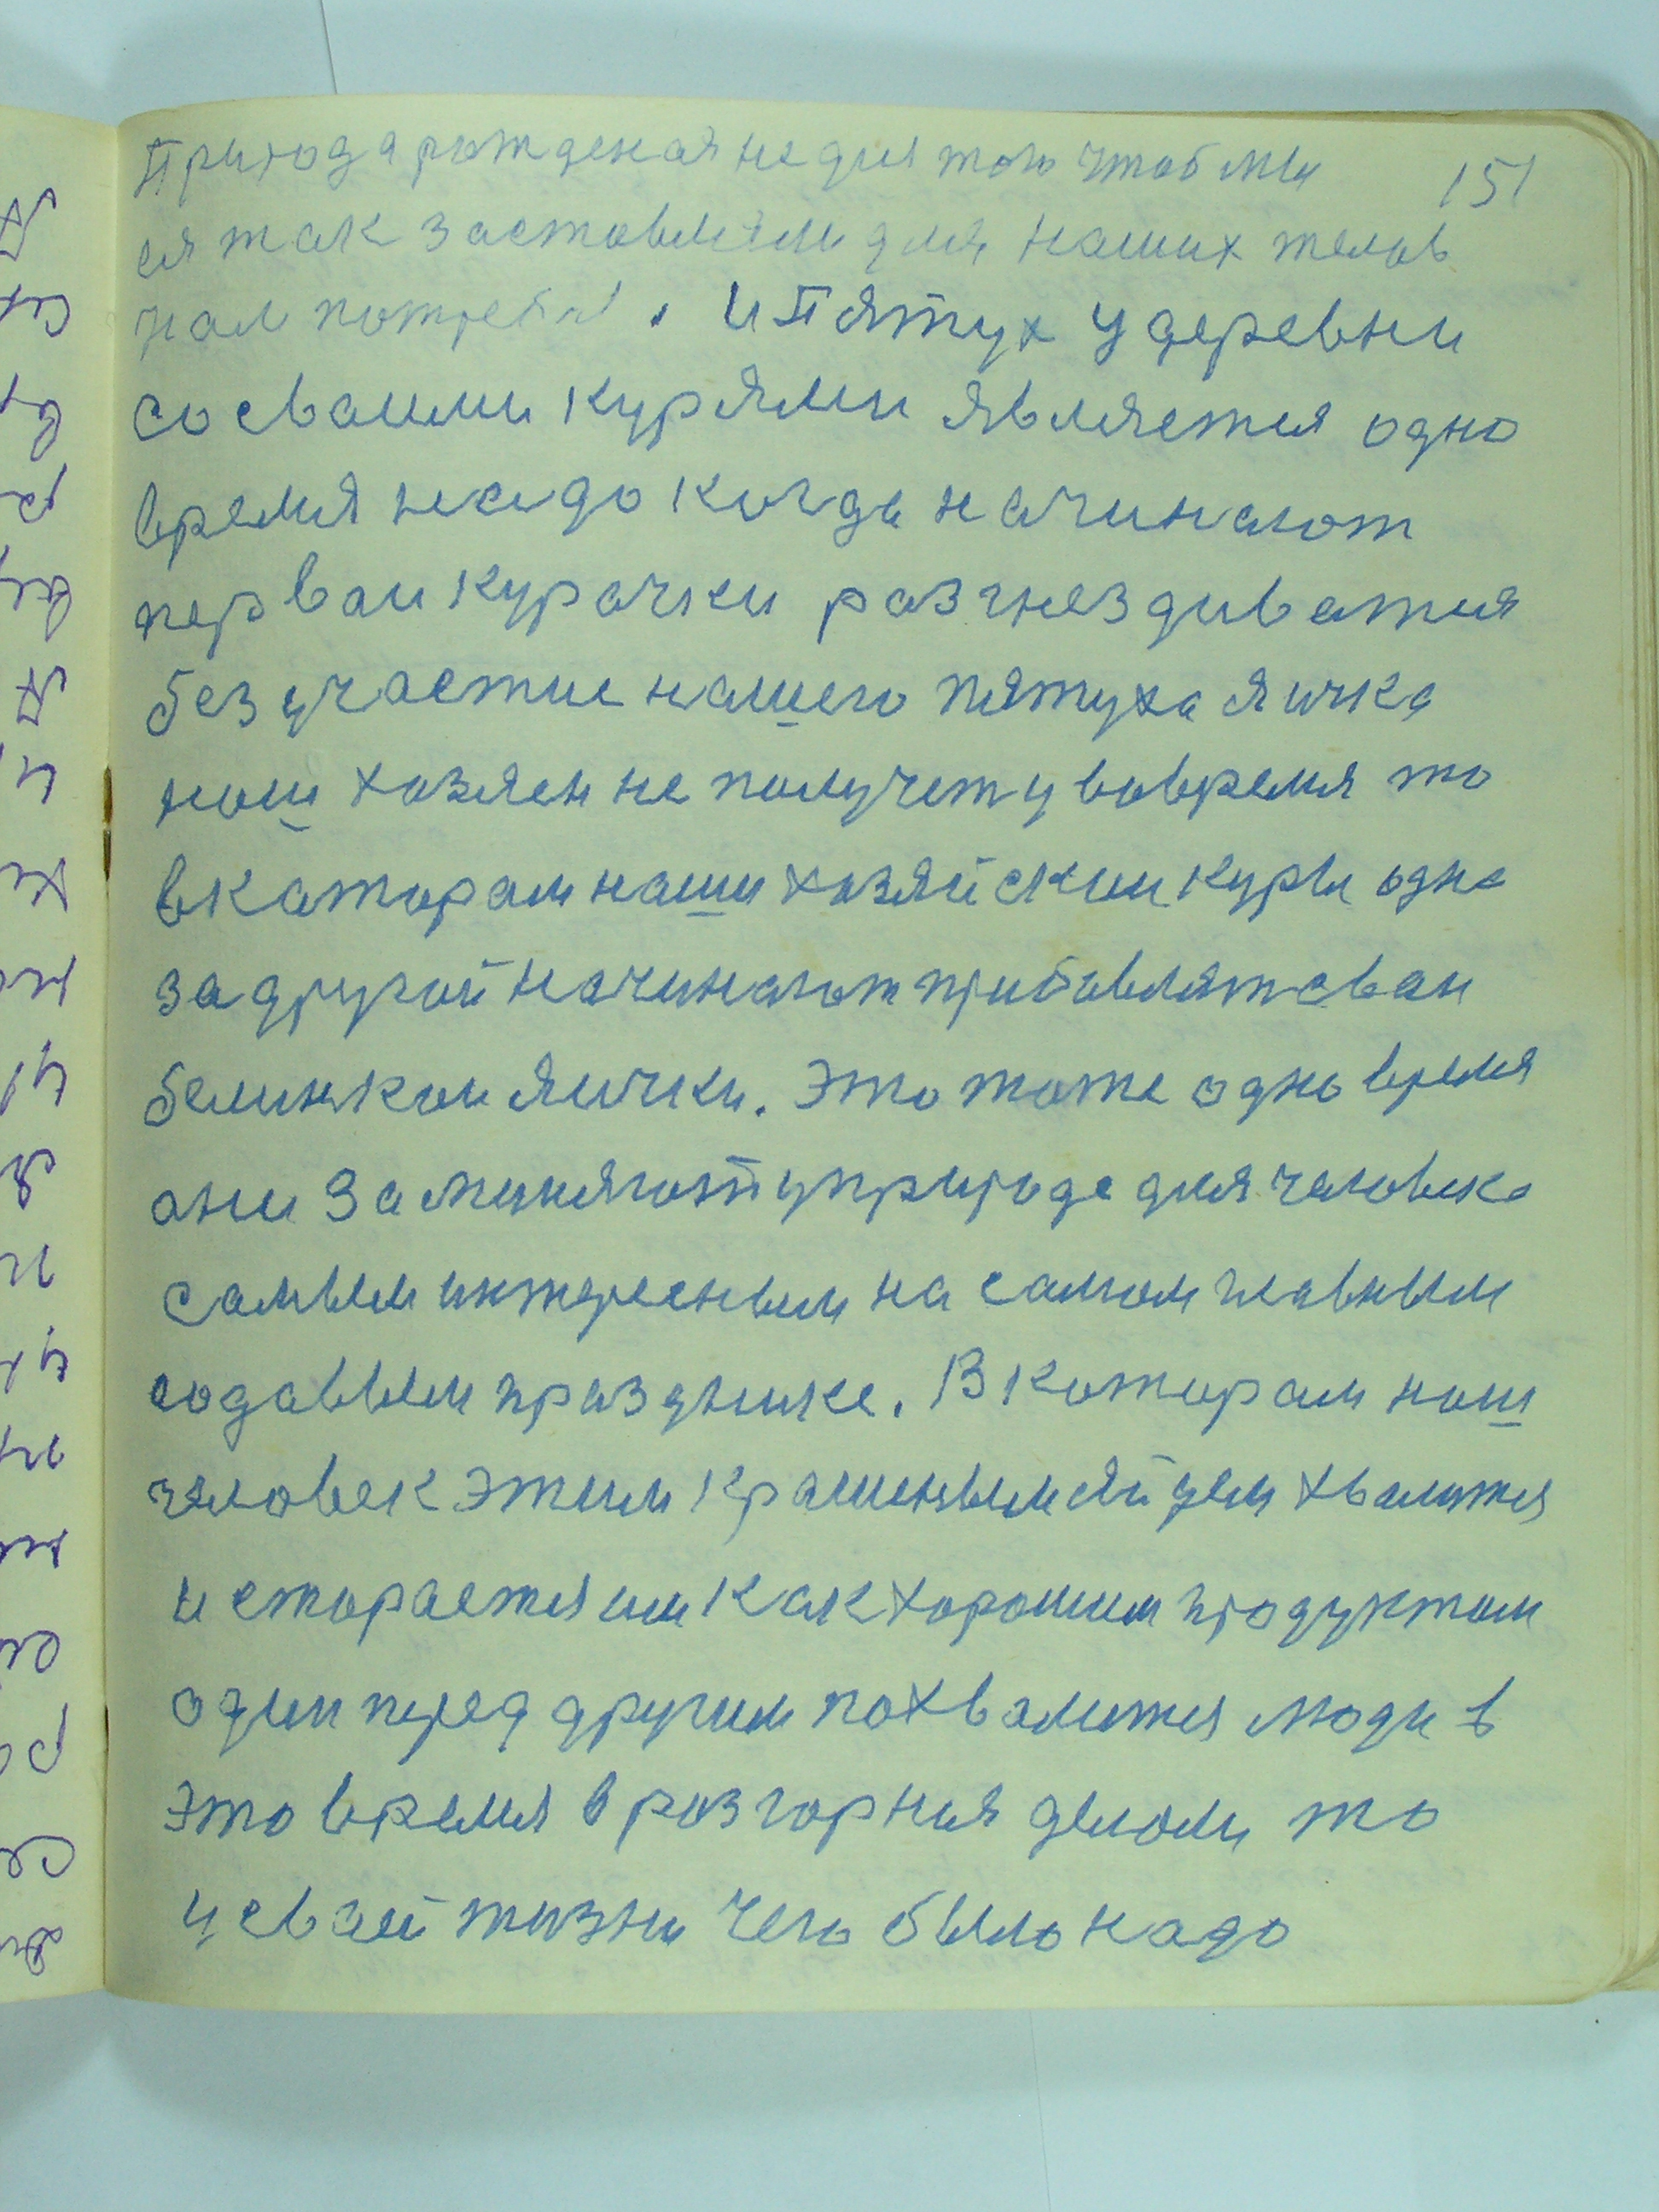 Природа рожденая не для того чтоб мы 151
ея так заставляли для наших телов
нам потребы. И Пятух у деревни
со сваими курями является одно
время надо когда начинают
перваи курачки разгнездиватия
без участие нашего пятуха яичка
наш хозяен не получет у вовремя то
в катором наши хозяйскии куры одна
за другой начинают прибавлят сваи
белинкаи яички. Это тоже одно время
они заменяют у природе для человека
самым интересным на самом главным
годавым празднике. В катором наш
человек этим крашеным яйцем хвалится
и старается им как хорошим продуктом
один перед другим похвалится люди в
это время в разгорния делом то
у свай жизни чего было надо